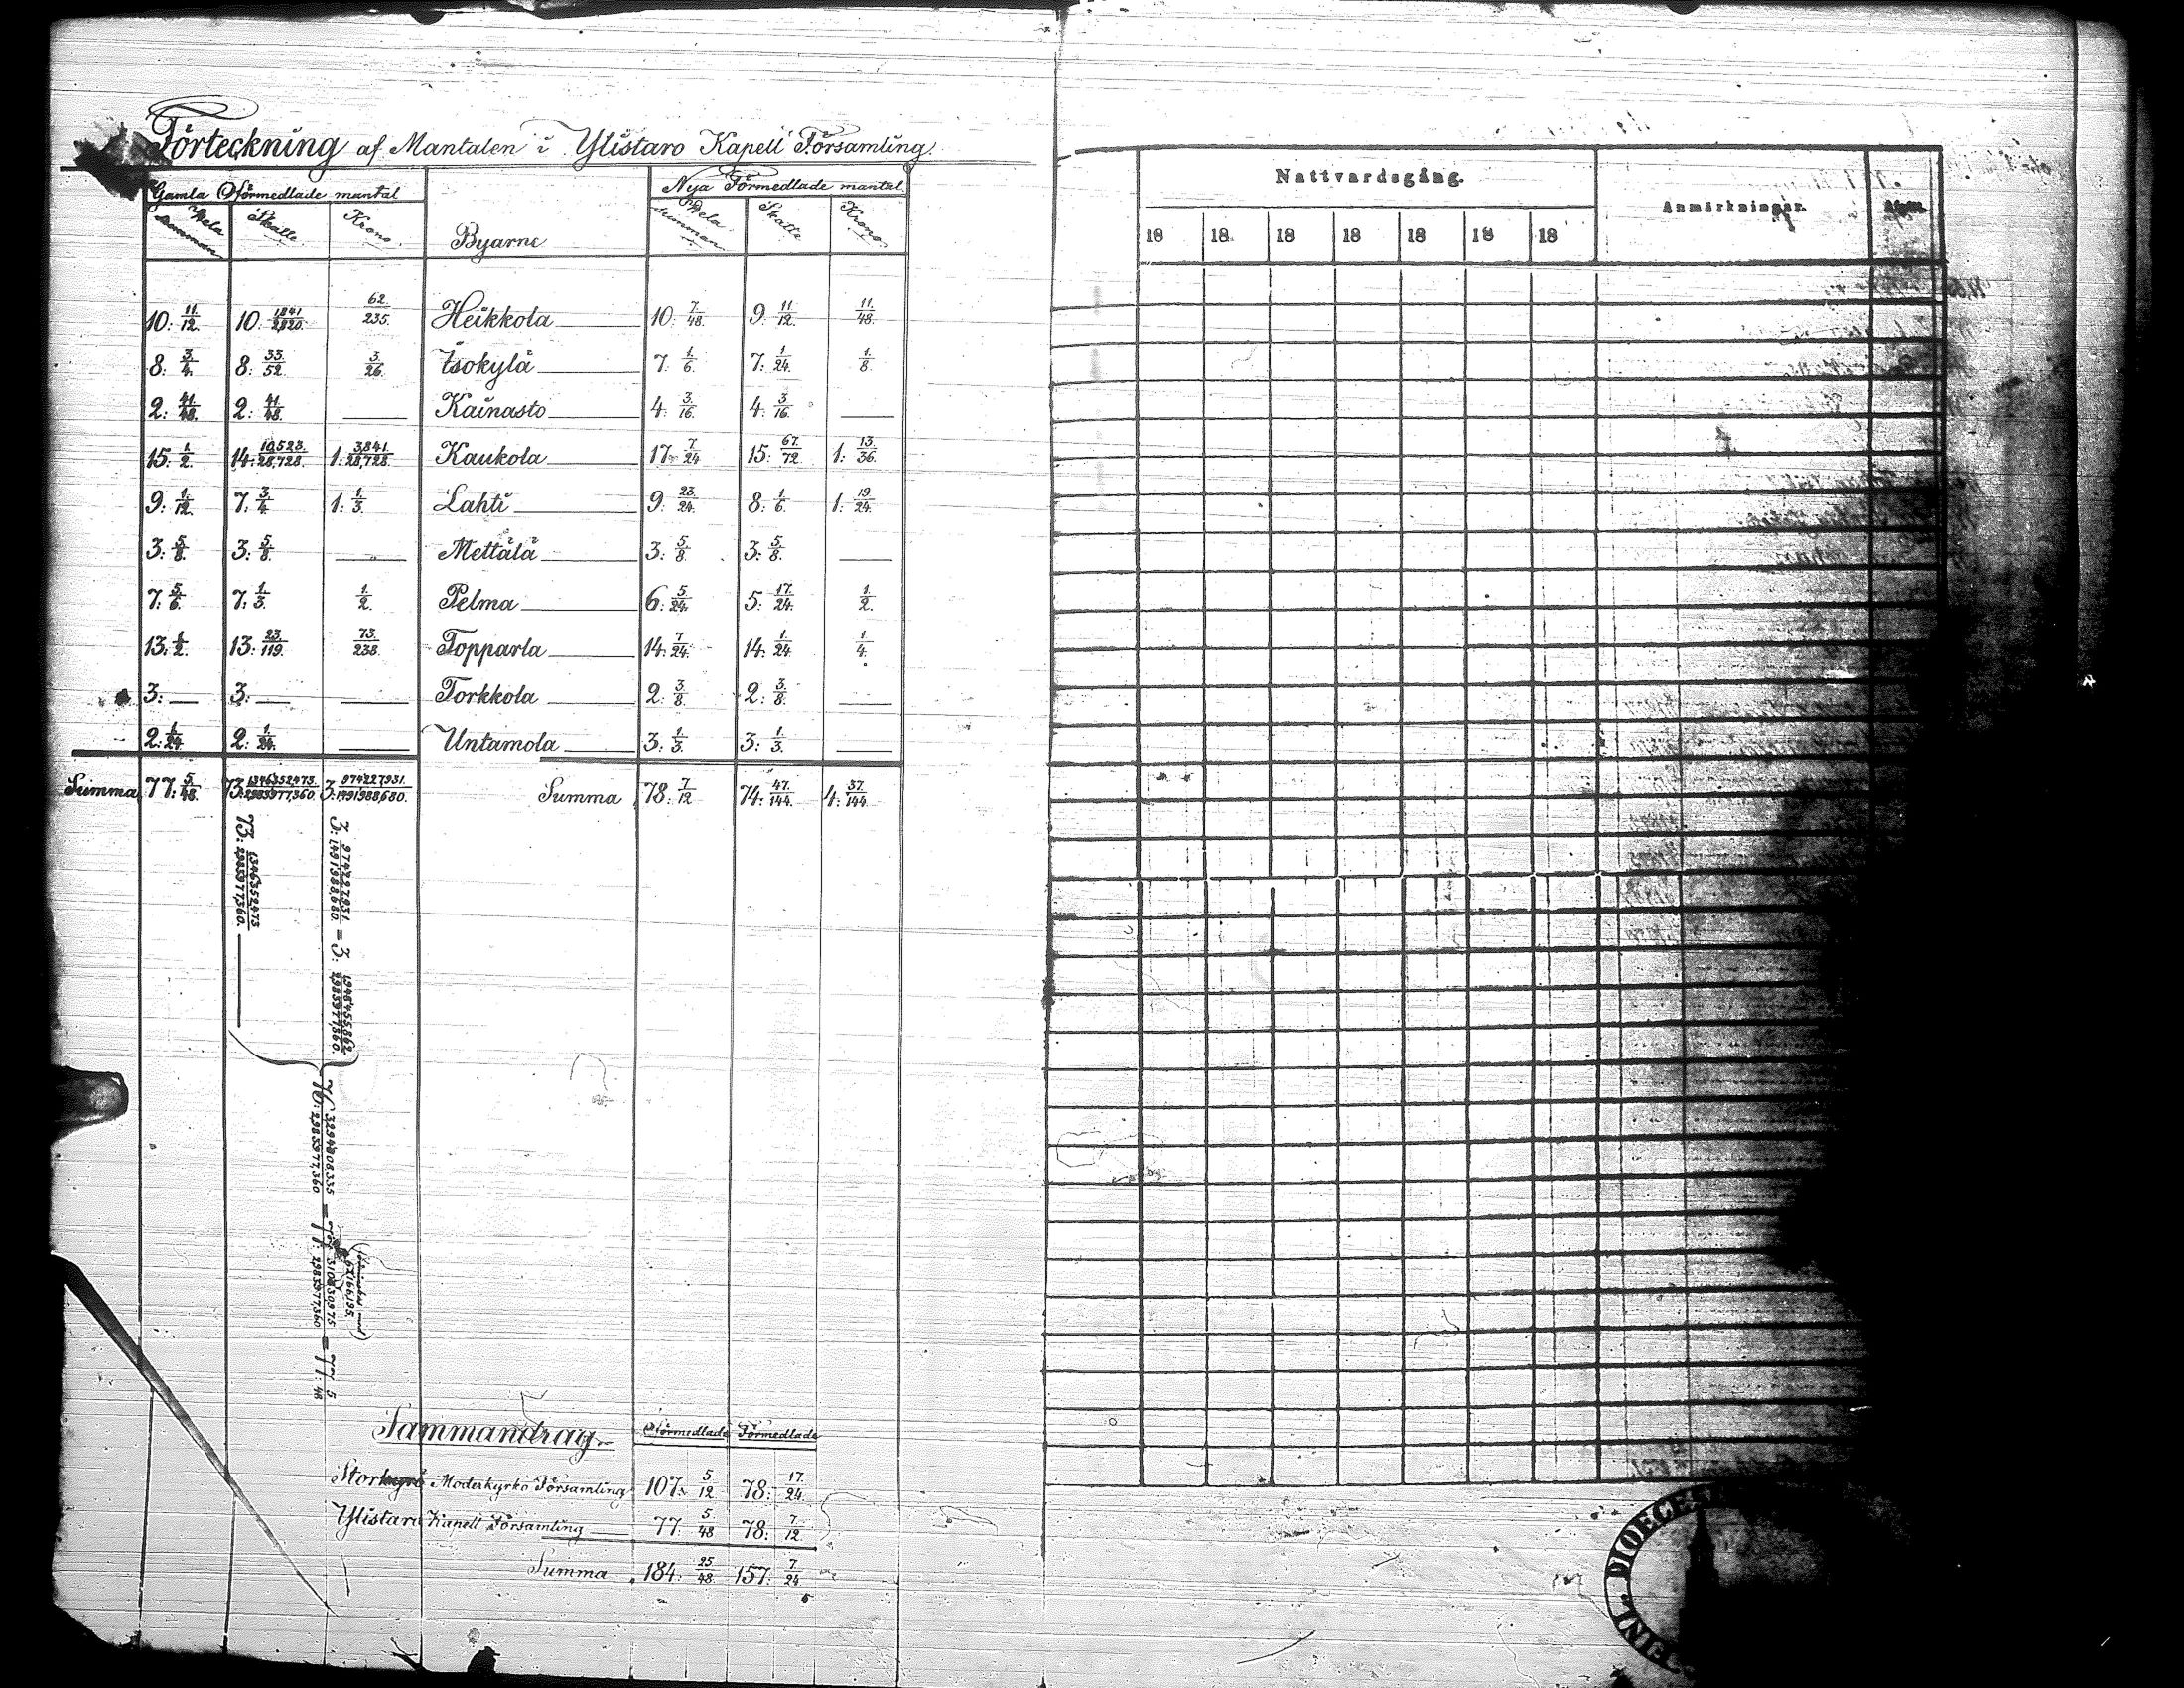 Förteckning af Mantalen i Ylistaro Kapell Församling.
Gamla Oförmedlade mantal Nya Förmedlade mantal
Hela summan Skatte Krono Byarne Hela summan Skatte Krono
10: 11/12. 10: 1841/2820. 62/235. Heikkola 10: 7/48. 9: 11/12. 11/48.
8: 3/4. 8: 33/52. 3/26. Isokylä 7: 1/6. 7: 1/24. 1/8.
2: 41/48. 2: 41/48. — Kainasto 4: 3/16. 4: 3/16. —
15: 1/2. 14: 10,523/28,728. 1: 3,841/28,728. Kaukola 17: 7/24 15: 67/72 1: 13/36.
9: 1/12. 7: 3/4. 1: 1/3. Lahti 9: 23/24. 8: 1/6. 1: 19/24.
3: 5/8. 3: 5/8. — Mettälä 3: 5/8. 3: 5/8. —
7: 5/6. 7: 1/3. 1/2. Pelma 6: 5/24. 5: 17/24. 1/2.
13: 1/2. 13: 23/119. 73/238. Topparla 14: 7/24. 14: 1/24. 1/4.
3: — 3: — — Torkkola 2: 3/8. 2: 3/8. —
2: 1/24. 2: 1/24. — Untamola 3: 1/3. 3: 1/3. —
Summa 77: 5/48. 73: 1346352473/2983977,360. 3: 974227931/1491988,680. Summa 78: 7/12 74: 47/144. 4: 37/144.
73: 1346352473/2983977,360.
3: 974227931/1491988680 = 3: 1948455862/2983977360.
76: 3294808335/2983977,360 = 77: 310830975/2983977,360 = 77: 5/48
Sammandrag
Oförmedlade Förmedlade
Storkyro Moderkyrko Församling 107: 5/12 78: 17/24.
Ylistaro Kapell Församling 77: 5/48 78: 7/12
Summa 184: 25/48. 157: 7/24
Nattvardsgång.
Anmärkningar.
18 18 18 18 18 18 18
DIOECES